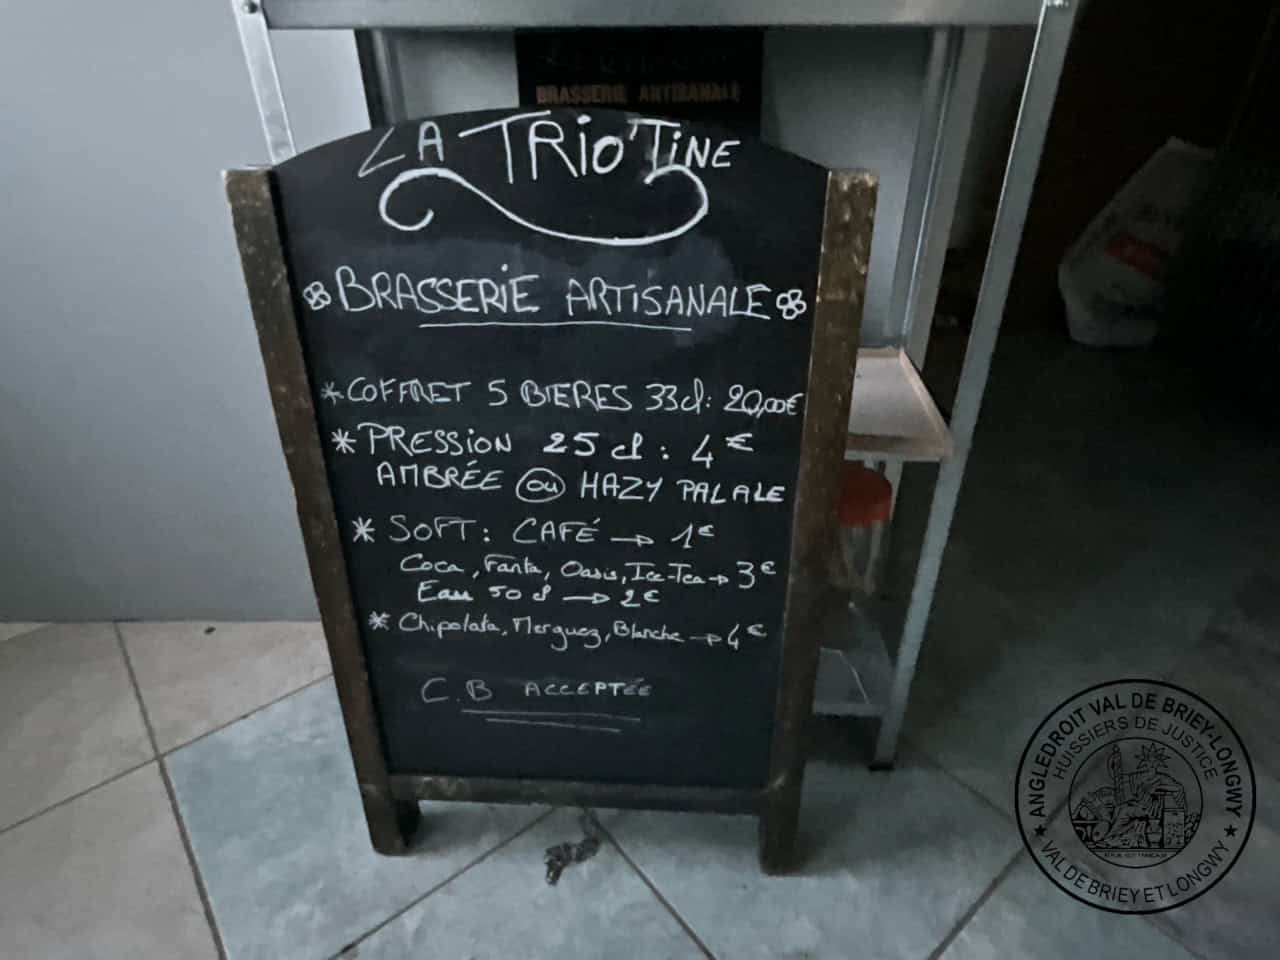 BRASSERIE ARTISANALE
LA TRiO'TiNE
BRASSERiE ARTISANALE
* COFFRET 5 BIERES 33cl: 20,00€
* PRESSiON 25 cl : 4€
AMBRÉE ou HAZY PALALE
* SOFT : CAFÉ → 1€
Coca, Fanta, Oasis, Ice-Tea → 3€
Eau 50 cl → 2€
* Chipolata, Merguez, Blanche → 4€
C.B ACCEPTÉE
ANGLEDROIT VAL DE BRIEY-LONGWY
HUISSIERS DE JUSTICE
VAL DE BRIEY ET LONGWY